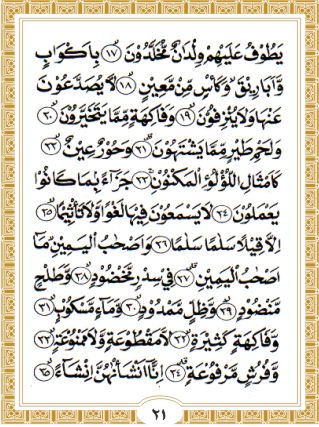 يَطُوْفُ عَلَيْهِمْ وِلْدَانٌ مُّخَلَّدُوْنَۙ ١٧ بِاَكْوَابٍ
وَّاَبَارِيْقَۙ وَكَأْسٍ مِّنْ مَّعِيْنٍۙ ١٨ لَّا يُصَدَّعُوْنَ
عَنْهَا وَلَا يُنْزِفُوْنَۙ ١٩ وَفَاكِهَةٍ مِّمَّا يَتَخَيَّرُوْنَۙ ٢٠
وَلَحْمِ طَيْرٍ مِّمَّا يَشْتَهُوْنَۗ ٢١ وَحُوْرٌ عِيْنٌۙ ٢٢
كَاَمْثَالِ اللُّؤْلُؤِ الْمَكْنُوْنِۚ ٢٣ جَزَاۤءًۢ بِمَا كَانُوْا
يَعْمَلُوْنَ ٢٤ لَا يَسْمَعُوْنَ فِيْهَا لَغْوًا وَّلَا تَأْثِيْمًاۙ ٢٥
اِلَّا قِيْلًا سَلٰمًا سَلٰمًا ٢٦ وَاَصْحٰبُ الْيَمِيْنِ مَآ
اَصْحٰبُ الْيَمِيْنِۗ ٢٧ فِيْ سِدْرٍ مَّخْضُوْدٍۙ ٢٨ وَّطَلْحٍ
مَّنْضُوْدٍۙ ٢٩ وَّظِلٍّ مَّمْدُوْدٍۙ ٣٠ وَّمَاۤءٍ مَّسْكُوْبٍۙ ٣١
وَّفَاكِهَةٍ كَثِيْرَةٍۙ ٣٢ لَّا مَقْطُوْعَةٍ وَّلَا مَمْنُوْعَةٍۙ ٣٣
وَّفُرُشٍ مَّرْفُوْعَةٍۗ ٣٤ اِنَّآ اَنْشَأْنٰهُنَّ اِنْشَاۤءًۙ ٣٥
٢١